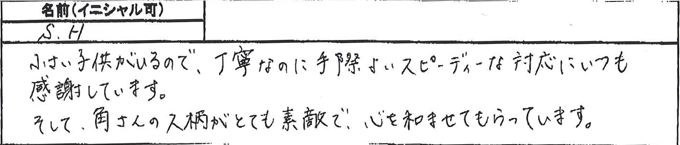 名前(イニシャル可)
S.H
小さい子供がいるので、丁寧なのに手際よいスピーディーな対応にいつも
感謝しています。
そして、角さんの人柄がとても素敵で、心を和ませてもらっています。